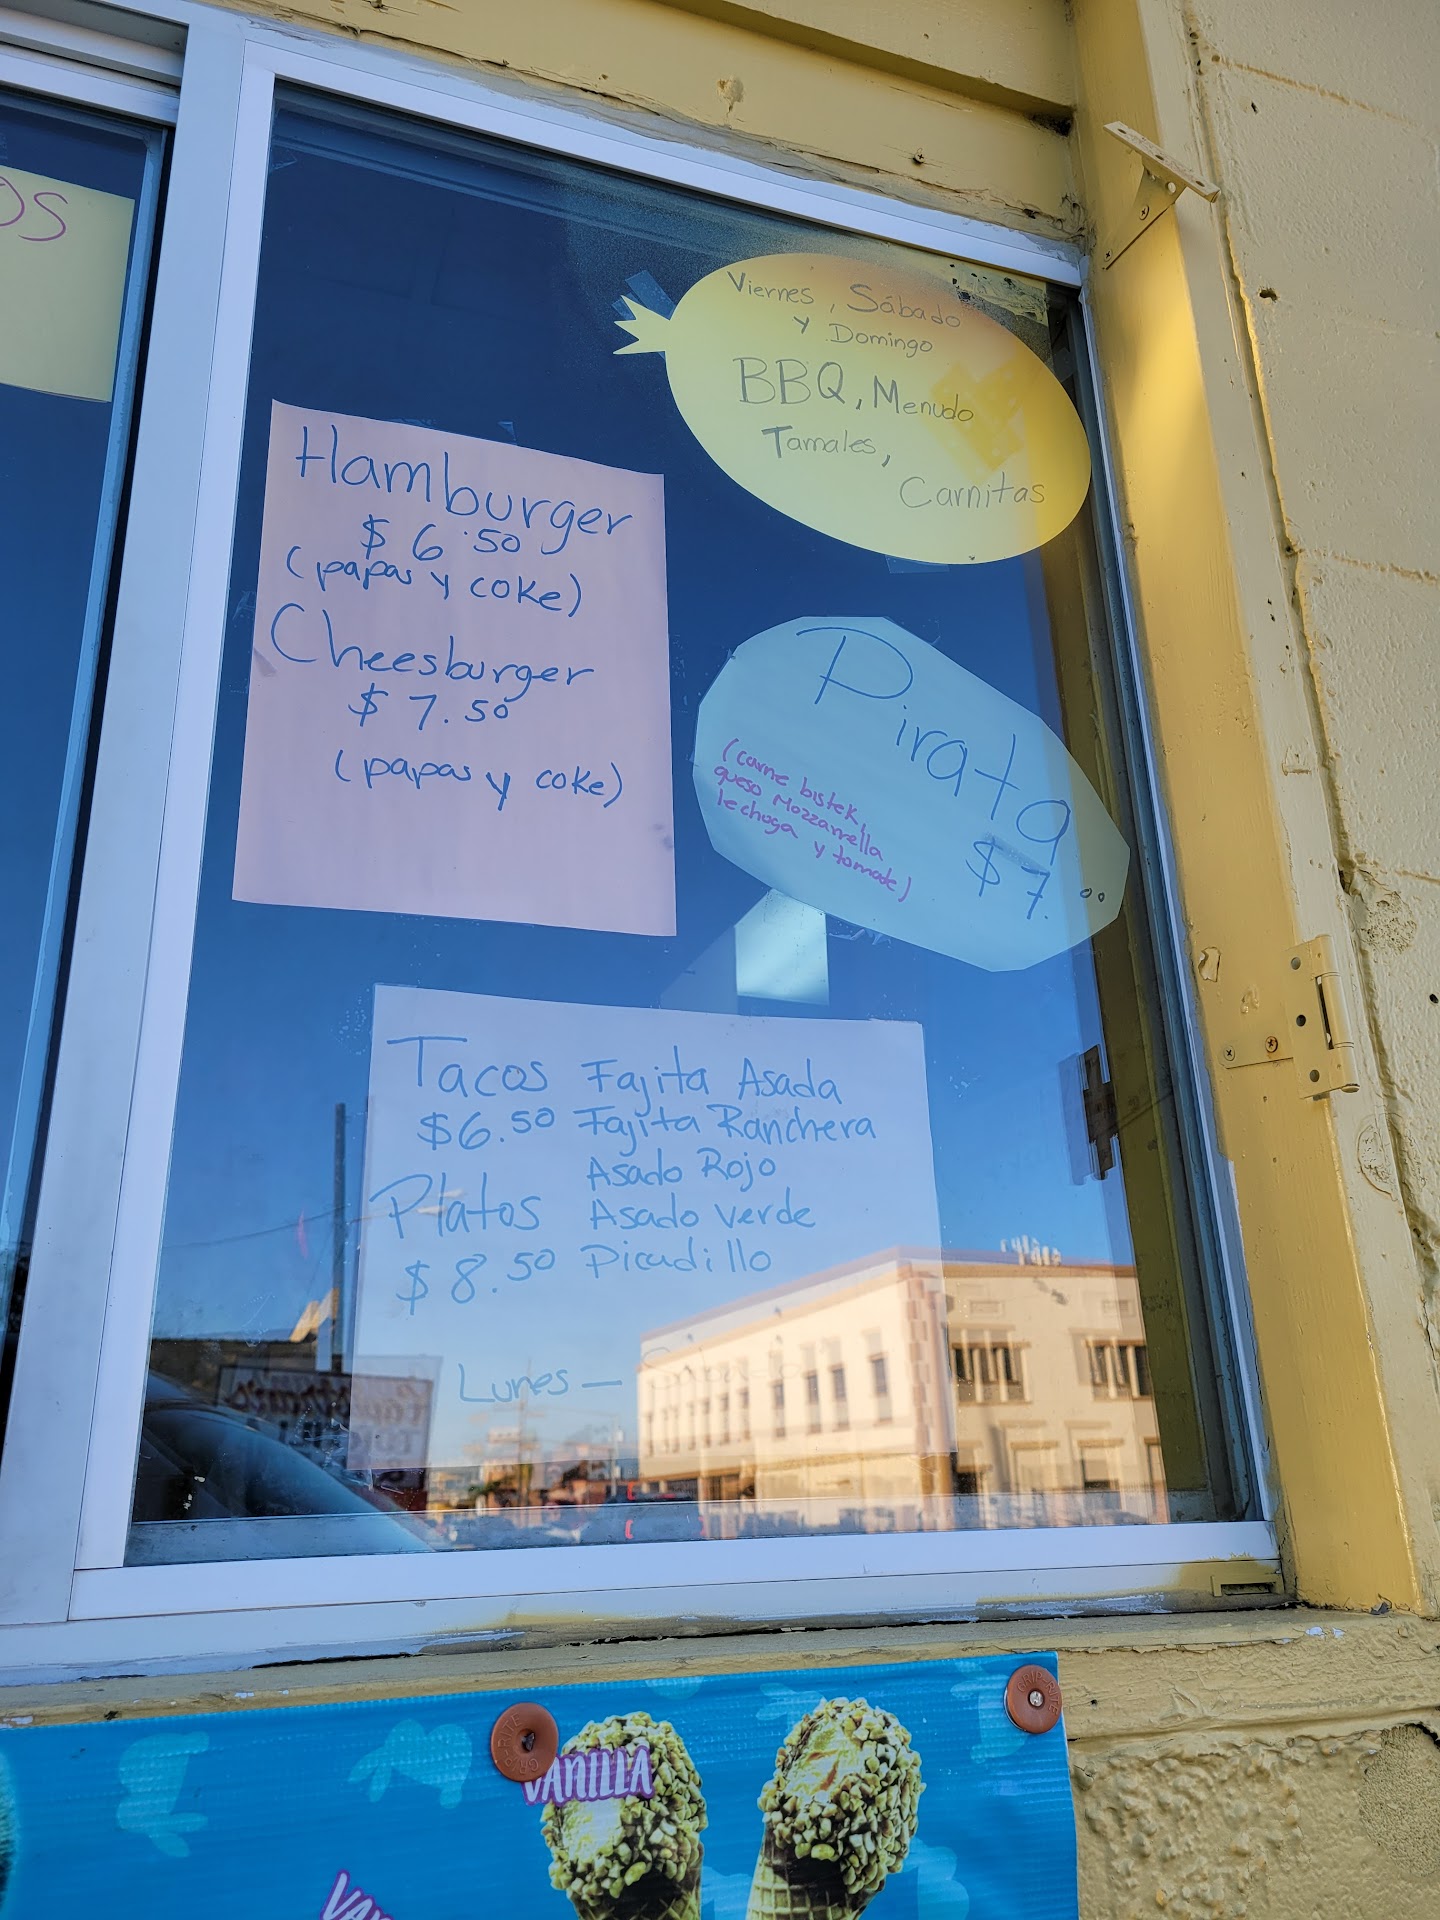 OS
Viernes, Sábado
y Domingo
BBQ, Menudo
Tamales,
Carnitas
Hamburger
$ 6.50
(papas y coke)
Cheesburger
$ 7.50
(papas y coke)
Pirata
$ 7.00
(carne bistek,
queso Mozzarrella
lechuga
y tomate)
Tacos Fajita Asada
$6.50 Fajita Ranchera
Asado Rojo
Platos Asado Verde
$ 8.50 Picadillo
Lunes — Sabado
GRIP-RITE
GRIP-RITE
VANILLA
VAN